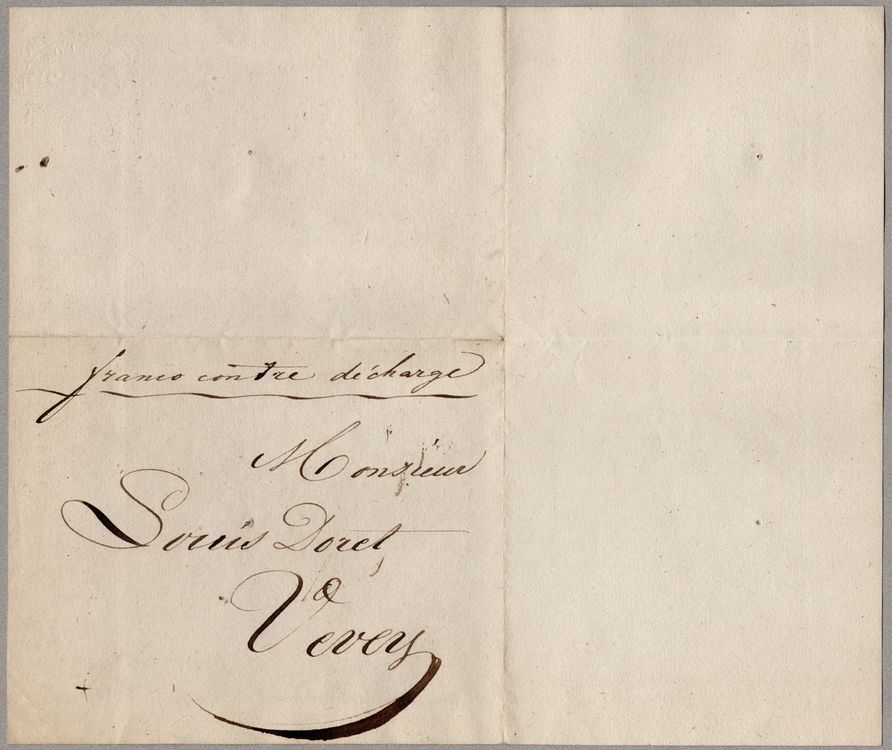 franco contre décharge
Monsieur
Louis Doret
à
Vevey